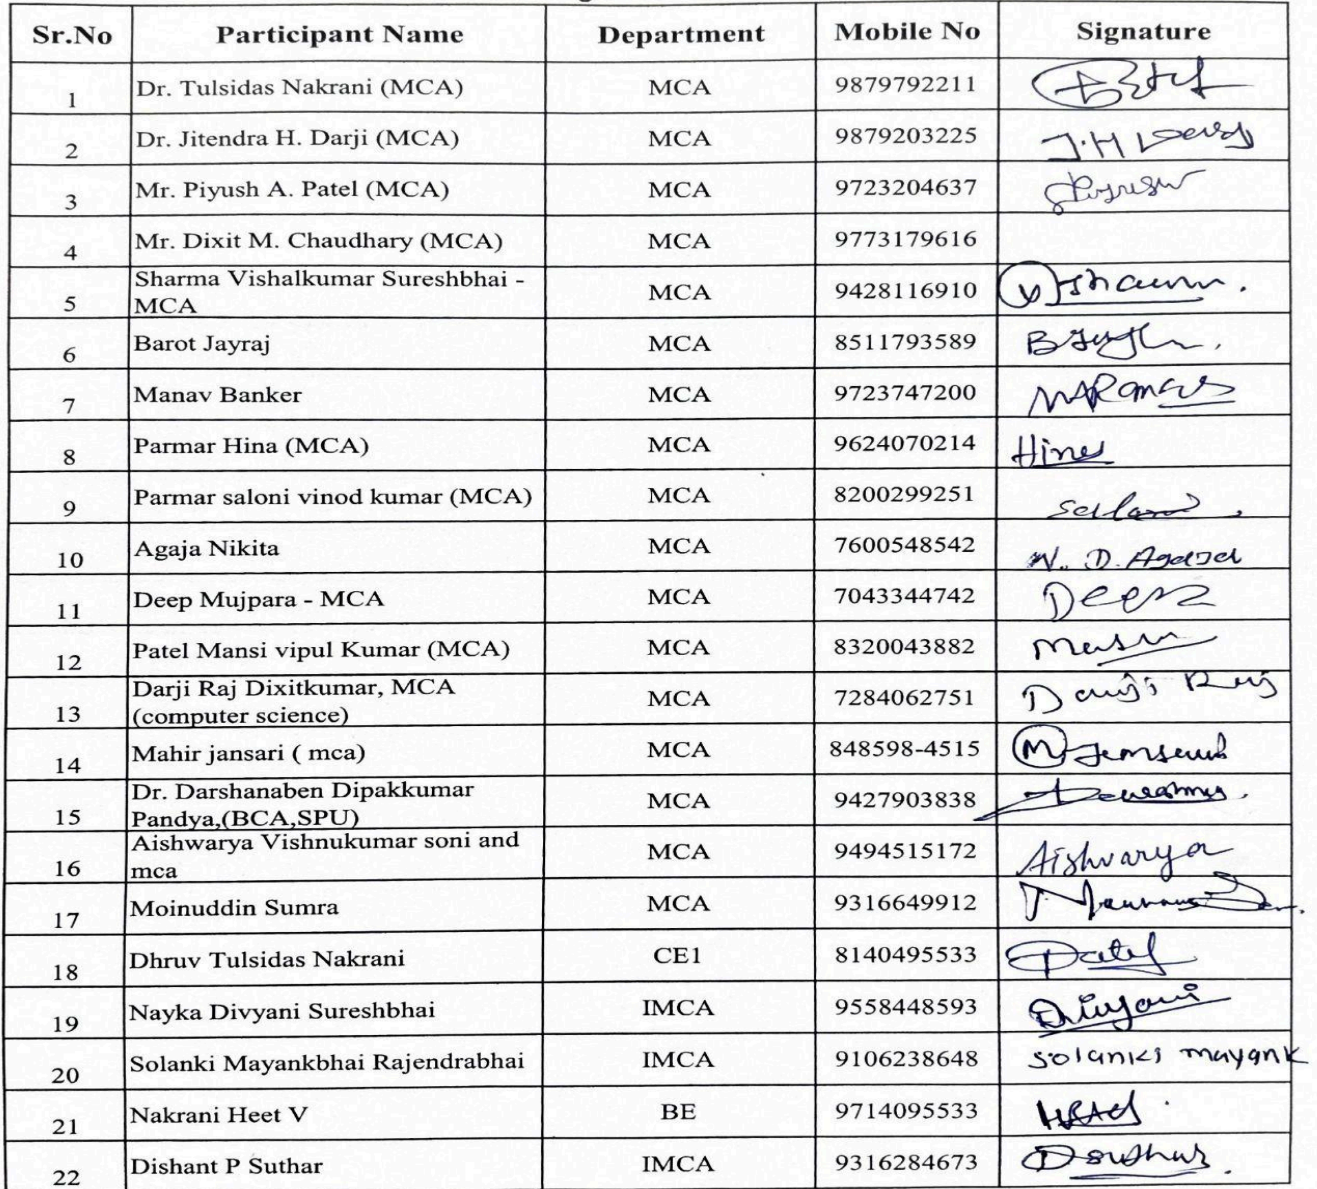 Sr.No Participant Name Department Mobile No Signature
1 Dr. Tulsidas Nakrani (MCA) MCA 9879792211
2 Dr. Jitendra H. Darji (MCA) MCA 9879203225 J.H Darji
3 Mr. Piyush A. Patel (MCA) MCA 9723204637
4 Mr. Dixit M. Chaudhary (MCA) MCA 9773179616
Sharma Vishalkumar Sureshbhai -
5 MCA MCA 9428116910
6 Barot Jayraj MCA 8511793589
7 Manav Banker MCA 9723747200
8 Parmar Hina (MCA) MCA 9624070214 Hina
9 Parmar saloni vinod kumar (MCA) MCA 8200299251
10 Agaja Nikita MCA 7600548542 N. D. Agaja
11 Deep Mujpara - MCA MCA 7043344742
12 Patel Mansi vipul Kumar (MCA) MCA 8320043882
Darji Raj Dixitkumar, MCA
13 (computer science) MCA 7284062751 Darji Raj
14 Mahir jansari ( mca) MCA 848598-4515
Dr. Darshanaben Dipakkumar
15 Pandya,(BCA,SPU) MCA 9427903838
Aishwarya Vishnukumar soni and
16 mca MCA 9494515172 Aishvarya
17 Moinuddin Sumra MCA 9316649912
18 Dhruv Tulsidas Nakrani CE1 8140495533
19 Nayka Divyani Sureshbhai IMCA 9558448593 Divyani
20 Solanki Mayankbhai Rajendrabhai IMCA 9106238648 solanki mayank
21 Nakrani Heet V BE 9714095533
22 Dishant P Suthar IMCA 9316284673